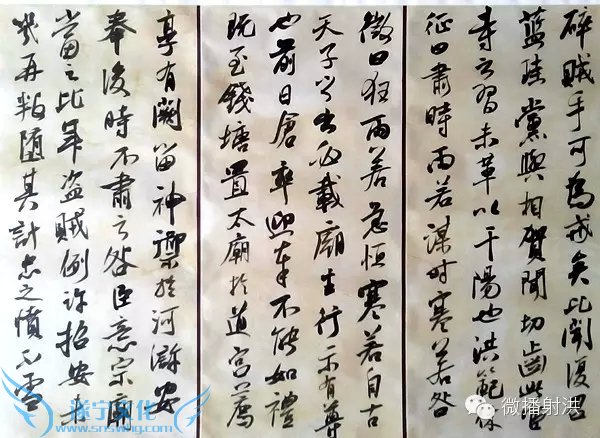 碎賊手可為戒矣比聞復召
藍珪黨與相賀聞切齒此宦
寺之習未革以干陽也洪範休
征曰肅時雨若謀时寒若咎
徵曰狂雨若急恒寒若自古
天子之出必載廟主行示有尊
也前日倉卒迎奉不能如禮
既至錢塘置太廟於道宮薦
享有闕留神禦於河滸安
奉後時不肅之咎臣意宗廟
當之比年盗賊例许招安未
幾再随其計忠之憤不雪
微播射洪